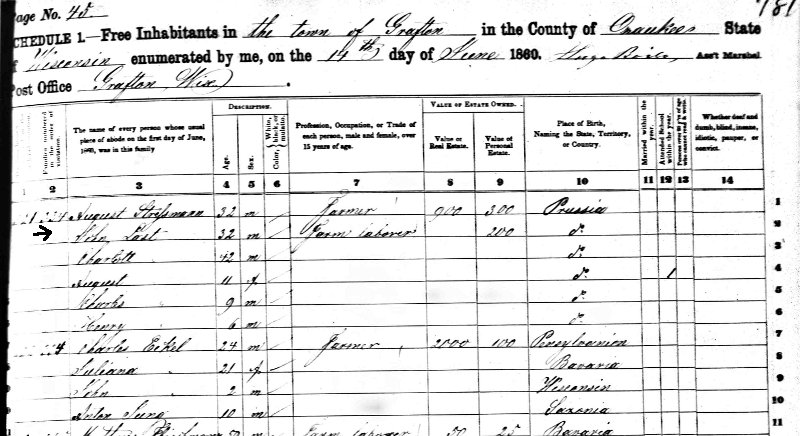 Page No. 45
181
SCHEDULE 1.—Free Inhabitants in the town of Grafton in the County of Ozaukee State
of Wisconsin enumerated by me, on the 14th day of June 1860. Ass't Marshal
Post Office Grafton Wis.
DESCRIPTION.
VALUE OF ESTATE OWNED.
The name of every person whose usual place of abode on the first day of June, 1860, was in this family
Age.
Sex.
Color, White, black, or mulatto.
Profession, Occupation, or Trade of each person, male and female, over 15 years of age.
Value of Real Estate.
Value of Personal Estate.
Place of Birth, Naming the State, Territory, or Country.
Married within the year.
Attended School within the year.
Whether deaf and dumb, blind, insane, idiotic, pauper, or convict.
2 3 4 5 6 7 8 9 10 11 12 13 14
August 32 m / Farmer 900 300 Prussia 1
John Last 32 m / Farm laborer 200 do 2
Charlott 42 m / do 3
August 11 f / do 1 4
Charles 9 m / do 5
Henry 6 m / do 6
Charles Eckel 24 m / Farmer 2000 100 Pensylvanien 7
Juliana 21 f / Bavaria 8
John 2 m / Wisconsin 9
Anton 10 m / Saxonia 10
m Farm laborer 50 25 Bavaria 11